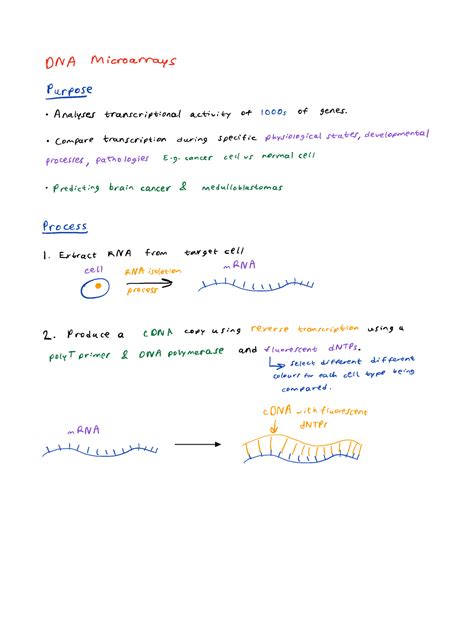 DNA Microarrays
Purpose
• Analyses transcriptional activity of 1000s of genes.
• Compare transcription during specific physiological states, developmental
processes, pathologies E.g. cancer cell vs normal cell
• Predicting brain cancer & medulloblastomas
Process
1. Extract RNA from target cell
cell
RNA isolation
process
mRNA
2. Produce a cDNA copy using reverse transcription using a
polyT primer & DNA polymerase and fluorescent dNTPs.
select different different
colours for each cell type being
compared.
mRNA
cDNA with fluorescent
dNTPs